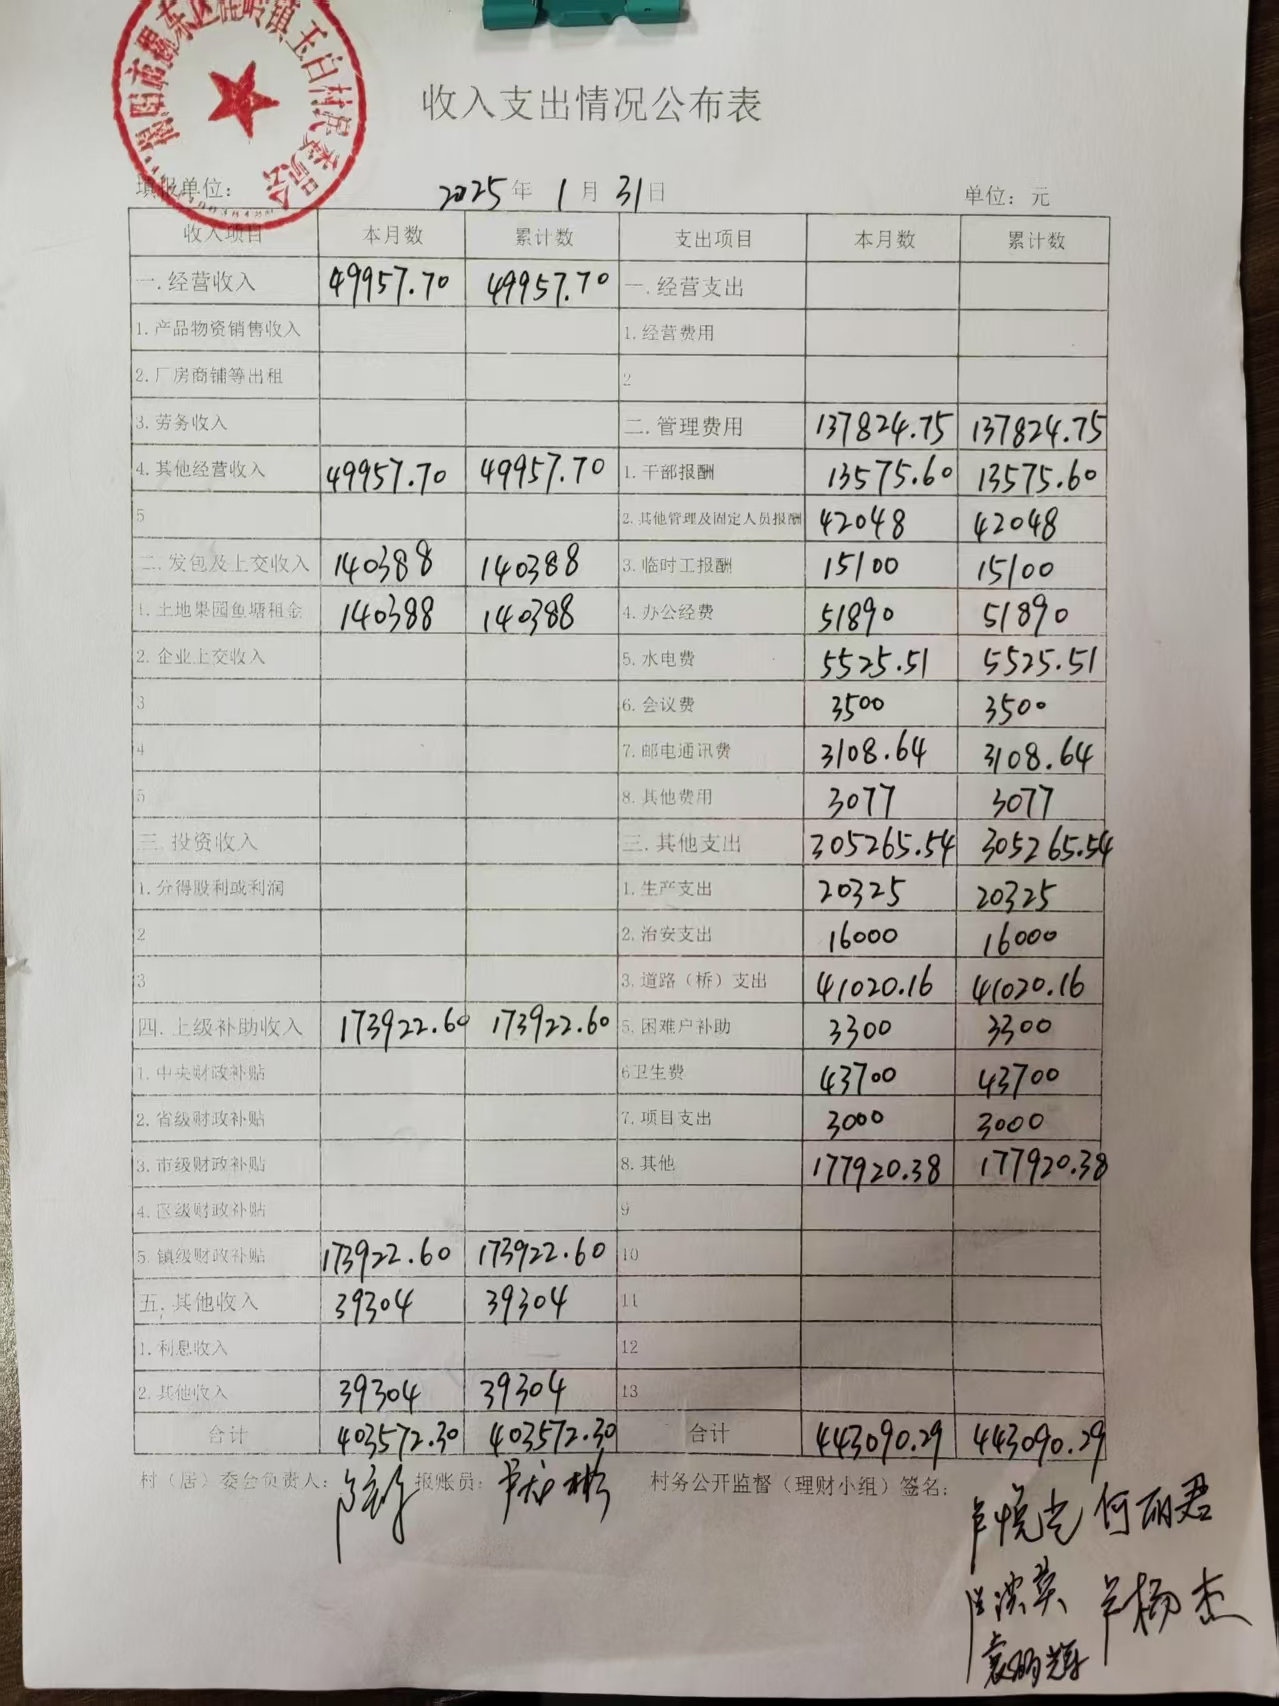 收入支出情况公布表
填报单位： 2025年 1月 31日 单位：元
收入项目 本月数 累计数 支出项目 本月数 累计数
一.经营收入 49957.70 49957.70 一.经营支出
1.产品物资销售收入 1.经营费用
2.厂房商铺等出租 2
3.劳务收入 二.管理费用 137824.75 137824.75
4.其他经营收入 49957.70 49957.70 1.干部报酬 13575.60 13575.60
5 2.其他管理及固定人员报酬 42048 42048
二.发包及上交收入 140388 140388 3.临时工报酬 15100 15100
1.土地果园鱼塘租金 140388 140388 4.办公经费 51890 51890
2.企业上交收入 5.水电费 5525.51 5525.51
3 6.会议费 3500 3500
4 7.邮电通讯费 3108.64 3108.64
5 8.其他费用 3077 3077
三.投资收入 三.其他支出 305265.54 305265.54
1.分得股利或利润 1.生产支出 20325 20325
2 2.治安支出 16000 16000
3 3.道路（桥）支出 41020.16 41020.16
四.上级补助收入 173922.60 173922.60 5.困难户补助 3300 3300
1.中央财政补贴 6卫生费 43700 43700
2.省级财政补贴 7.项目支出 3000 3000
3.市级财政补贴 8.其他 177920.38 177920.38
4.区级财政补贴 9
5.镇级财政补贴 173922.60 173922.60 10
五.其他收入 39304 39304 11
1.利息收入 12
2.其他收入 39304 39304 13
合计 403572.30 403572.30 合计 443090.29 443090.29
村（居）委会负责人： 报账员： 村务公开监督（理财小组）签名：
何丽君
卢杨杰